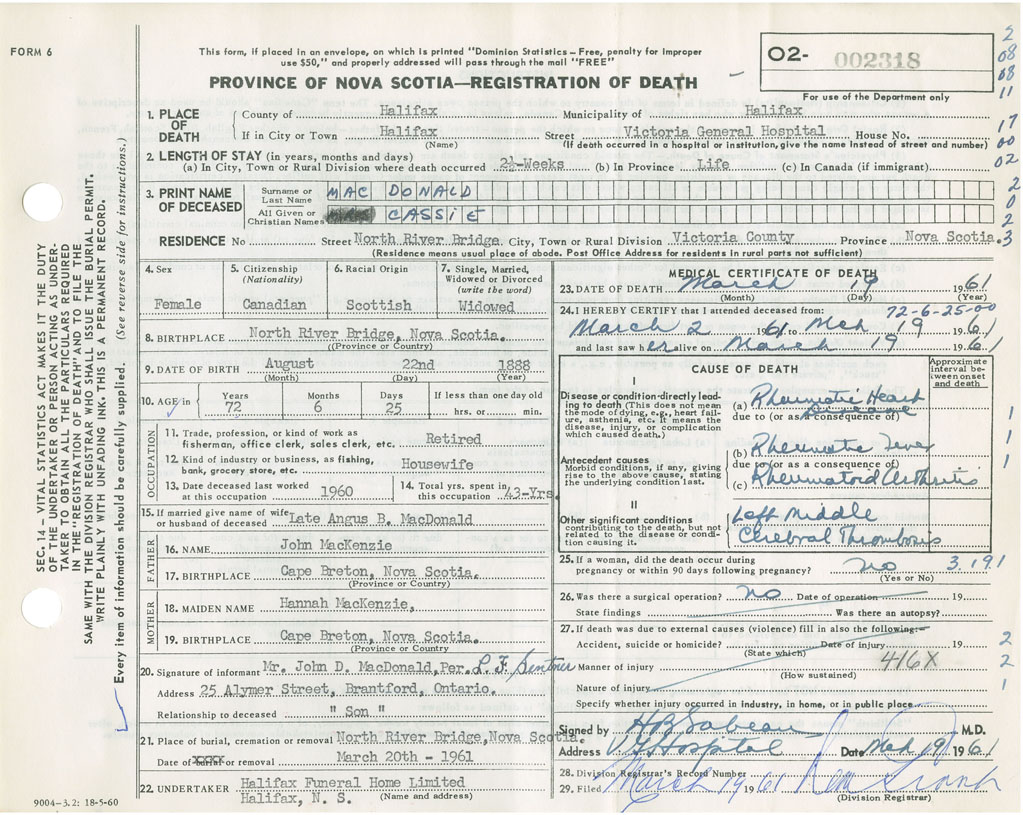 FORM 6
This form, if placed in an envelope, on which is printed "Dominion Statistics – Free, penalty for improper
use $50," and properly addressed will pass through the mail "FREE"
O2- 002318
For use of the Department only
PROVINCE OF NOVA SCOTIA—REGISTRATION OF DEATH
2
08
08
11
17
00
02
2
0
2
3
1. PLACE OF DEATH
County of Halifax Municipality of Halifax
If in City or Town Halifax Street Victoria General Hospital House No.
(Name) (If death occurred in a hospital or institution, give the name instead of street and number)
2. LENGTH OF STAY (in years, months and days)
(a) In City, Town or Rural Division where death occurred 2½-Weeks (b) In Province Life (c) In Canada (if immigrant)
3. PRINT NAME OF DECEASED
Surname or Last Name MAC DONALD
All Given or Christian Names CASSIE
RESIDENCE No Street North River Bridge. City, Town or Rural Division Victoria County Province Nova Scotia.
(Residence means usual place of abode. Post Office Address for residents in rural parts not sufficient)
4. Sex
Female
5. Citizenship
(Nationality)
Canadian
6. Racial Origin
Scottish
7. Single, Married,
Widowed or Divorced
(write the word)
Widowed
8. BIRTHPLACE North River Bridge, Nova Scotia.
(Province or Country)
9. DATE OF BIRTH August 22nd 1888
(Month) (Day) (Year)
10. AGE in
Years 72
Months 6
Days 25
If less than one day old
hrs. or min.
OCCUPATION
11. Trade, profession, or kind of work as
fisherman, office clerk, sales clerk, etc. Retired
12. Kind of industry or business, as fishing,
bank, grocery store, etc. Housewife
13. Date deceased last worked
at this occupation 1960
14. Total yrs. spent in
this occupation 43-Yrs.
15. If married give name of wife
or husband of deceased Late Angus B. MacDonald
FATHER
16. NAME John MacKenzie
17. BIRTHPLACE Cape Breton, Nova Scotia.
(Province or Country)
MOTHER
18. MAIDEN NAME Hannah MacKenzie,
19. BIRTHPLACE Cape Breton, Nova Scotia.
(Province or Country
20. Signature of informant Mr. John D. MacDonald, Per.
Address 25 Alymer Street, Brantford, Ontario.
Relationship to deceased " Son "
21. Place of burial, cremation or removal North River Bridge, Nova Scotia.
Date of or removal March 20th - 1961
22. UNDERTAKER Halifax Funeral Home Limited
Halifax, N. S. (Name and address)
9004–3.2: 18-5-60
MEDICAL CERTIFICATE OF DEATH
23. DATE OF DEATH March 19 1961
(Month) (Day) (Year)
24. I HEREBY CERTIFY that I attended deceased from: 72-6-25-00
March 2 1961 to Mch 19 1961
and last saw her alive on March 19 1961
CAUSE OF DEATH
Approximate
interval be-
tween onset
and death
I
Disease or condition directly lead-
ing to death (This does not mean
the mode of dying, e.g., heart fail-
ure, asthenia, etc. It means the
disease, injury, or complication
which caused death.)
(a) Rheumatic Heart
Disease
due to (or as a consequence of)
Antecedent causes
Morbid conditions, if any, giving
rise to the above cause, stating
the underlying condition last.
(b) Rheumatic Fever
due to (or as a consequence of)
(c) Rheumatoid Arthritis
II
Other significant conditions
contributing to the death, but not
related to the disease or condi-
tion causing it.
Left Middle
Cerebral Thrombosis
1
1
1
1
25. If a woman, did the death occur during
pregnancy or within 90 days following pregnancy? no 3.191
(Yes or No)
26. Was there a surgical operation? no Date of operation 19
State findings Was there an autopsy?
27. If death was due to external causes (violence) fill in also the following:—
Accident, suicide or homicide? Date of injury 19
(State which)
Manner of injury 416X
(How sustained)
Nature of injury
Specify whether injury occurred in industry, in home, or in public place
2
2
1
Signed by M.D.
Address V.G. Hospital Date Mch 19 1961
28. Division Registrar's Record Number
29. Filed March 19 1961
(Division Registrar)
SEC. 14 – VITAL STATISTICS ACT MAKES IT THE DUTY
OF THE UNDERTAKER OR PERSON ACTING AS UNDER-
TAKER TO OBTAIN ALL THE PARTICULARS REQUIRED
IN THE "REGISTRATION OF DEATH" AND TO FILE THE
SAME WITH THE DIVISION REGISTRAR WHO SHALL ISSUE THE BURIAL PERMIT.
WRITE PLAINLY WITH UNFADING INK. THIS IS A PERMANENT RECORD.
Every item of information should be carefully supplied. (See reverse side for instructions.)